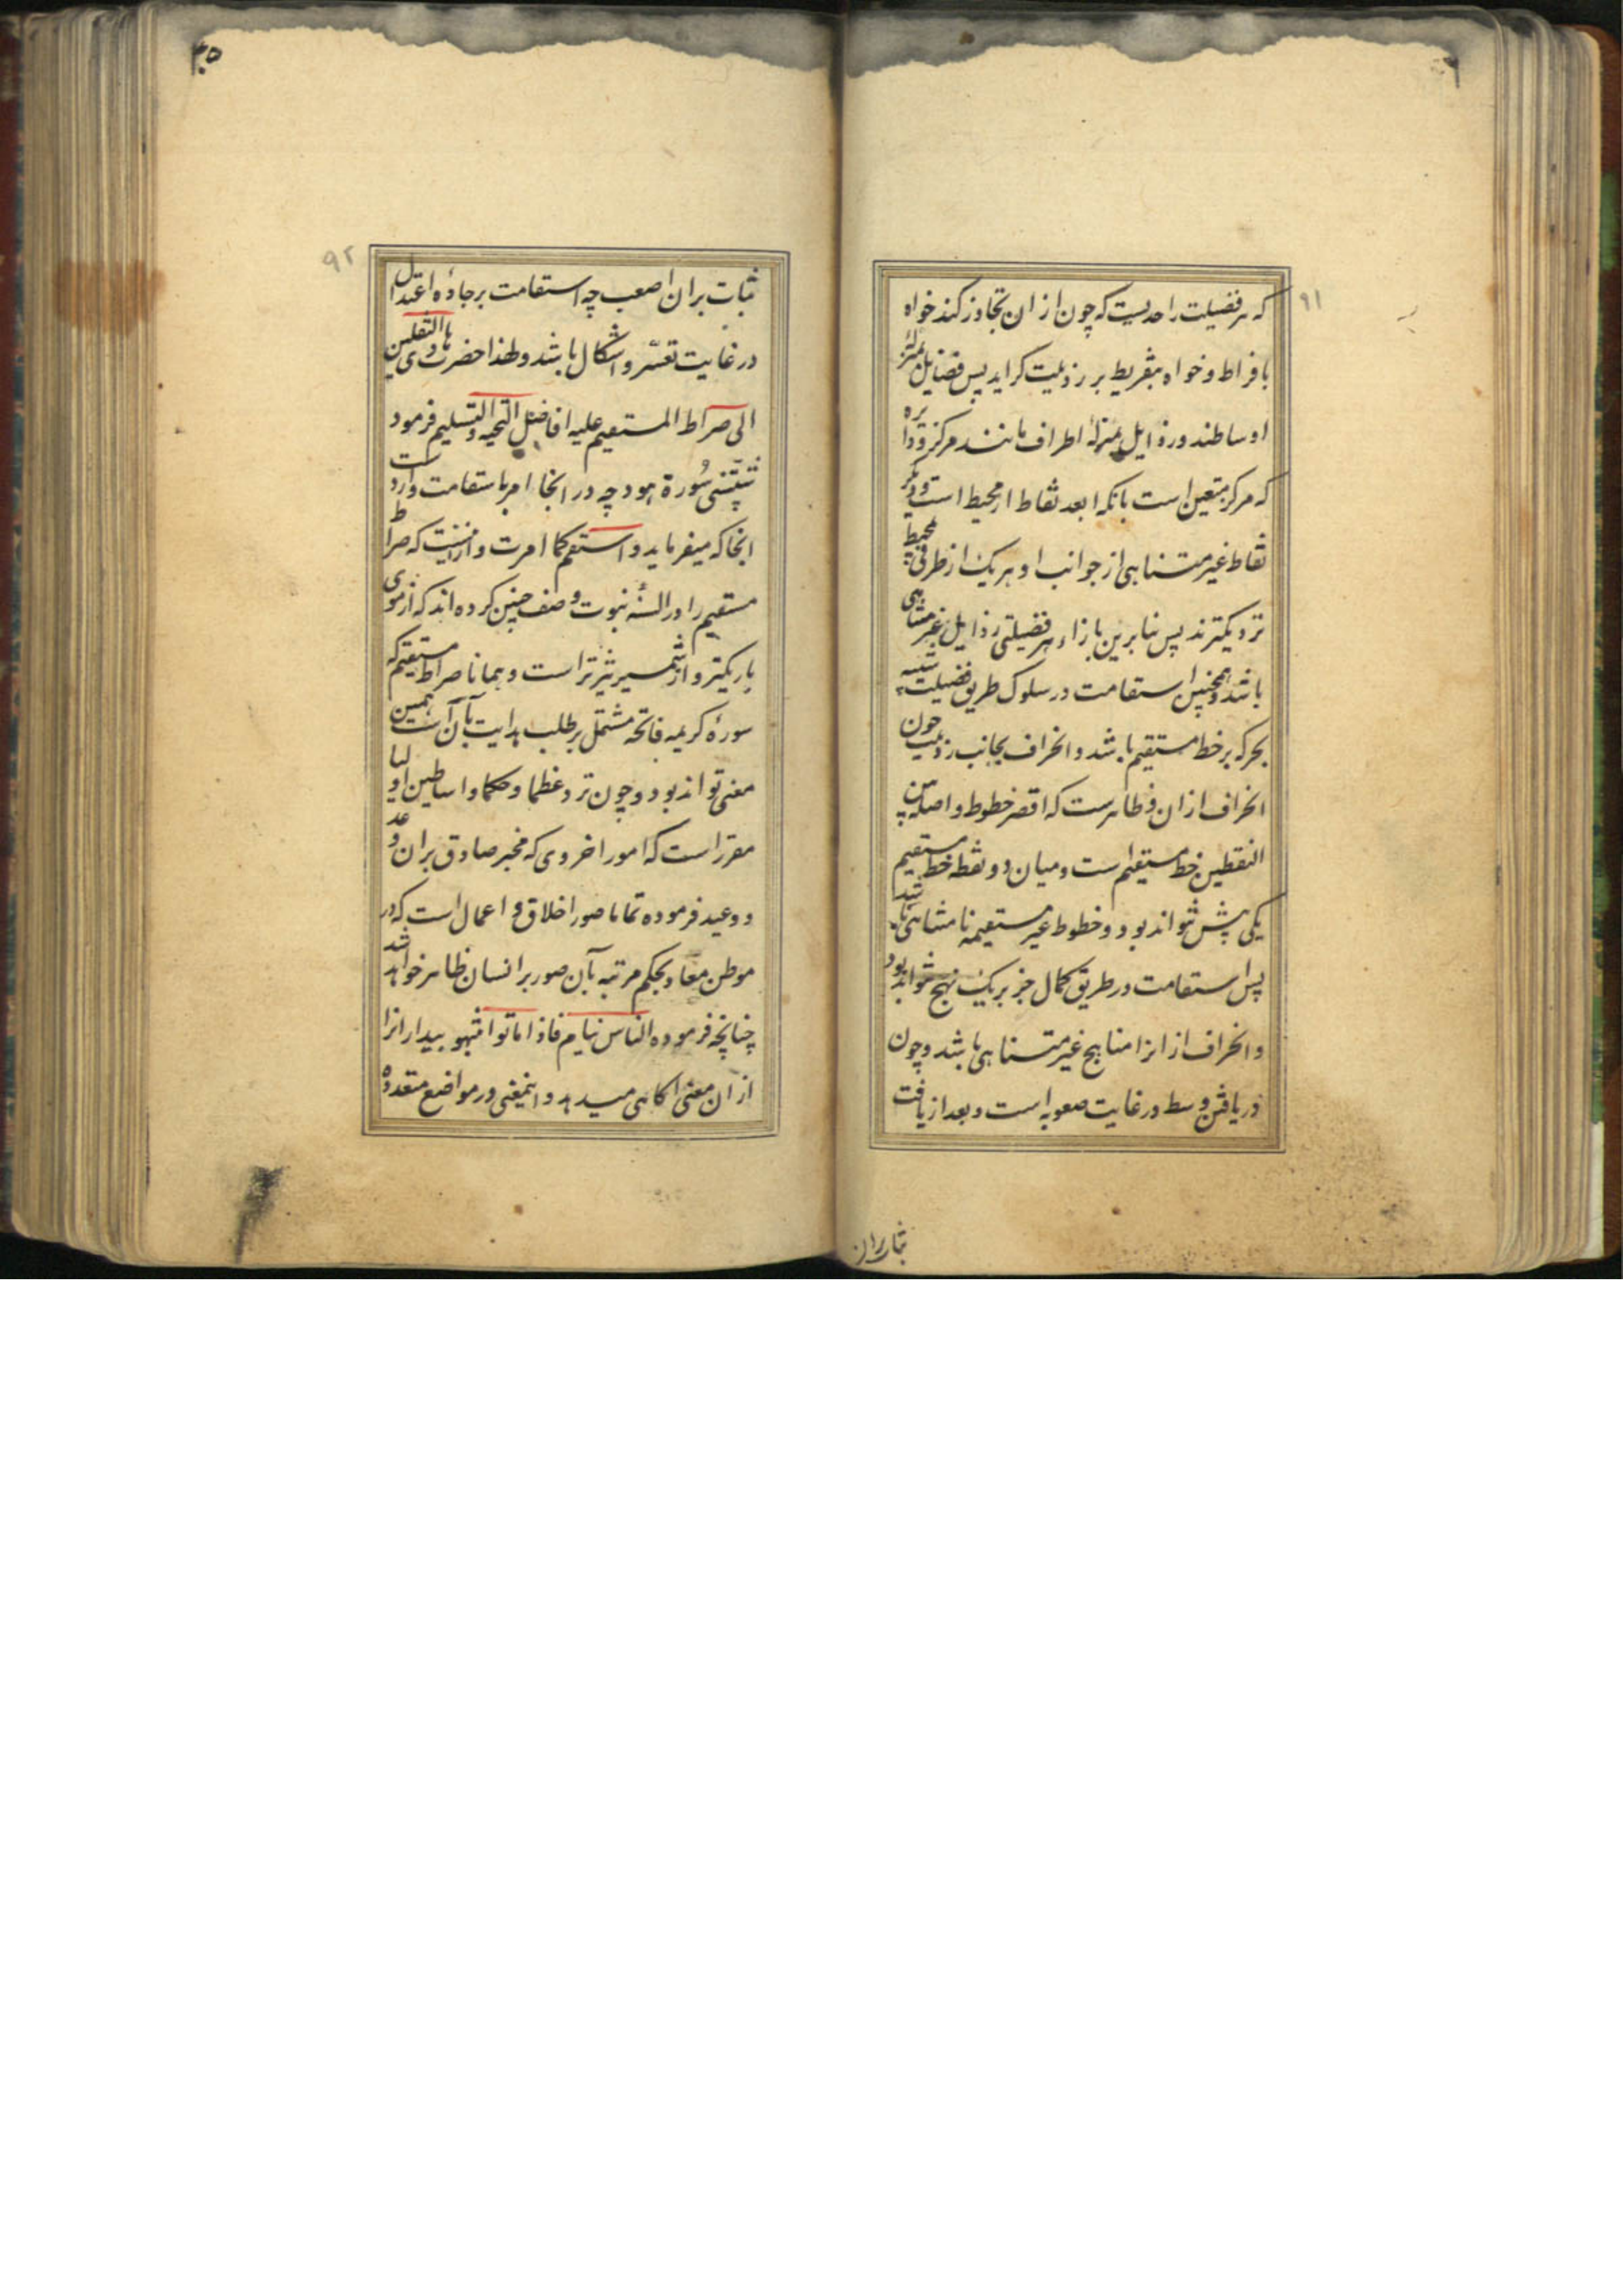 ۹۱
که هر فضیلت را حدیست که چون ازان تجاوز کند خواه
بافراط و خواه بتفریط برذیلت کراید پس فضایل بمنزلهٔ
اوساطند و رذایل بمنزلهٔ اطراف مانند مرکز و دایره
که مرکز متعین است بانکه ابعد نقاط از محیط است و دیکر
نقاط غیر متناهی از جوانب او هر یک از طرفی بمحیط
نزدیکترند پس بنابرین بازاء هر فضیلتی رذایل غیر متناهی
باشد و همچنین استقامت در سلوک طریق فضیلت شبیه
بحرکه بر خط مستقیم باشد و انحراف بجانب رذیلت چون
انحراف ازان و ظاهرست که اقصر خطوط واصله بین
النقطین خط مستقیم است و میان دو نقطه خط مستقیم
یکی بیش نتواند بود و خطوط غیر مستقیمه نامتناهی باشد
پس استقامت در طریق کمال جز بر یک نهج نتواند بود
و انحراف از انرا مناهج غیر متناهی باشد و چون
دریافتن وسط در غایت صعوبه است و بعد از یافت
ثبات بران
۹۲
ثبات بران اصعب چه استقامت بر جادهٔ اعتدال
در غایت تعسّر و اشکال باشد و لهذا حضرت هادی الثقلین
الی صراط المستقیم علیه افاضل التحیه و التسلیم فرمود
شیّبتنی سُورة هود چه در انجا امر باستقامت وارد است
انجا که میفرماید و استقم کما امرت و ازینست که صراط
مستقیم را در السنهٔ نبوت وصف چنین کرده اند که از موی
باریکتر و از شمسیر تیزتر است و همانا صراط مستقیم که
سورهٔ کریمه فاتحه مشتمل بر طلب هدایت بآن است همین
معنی تواند بود و چون نزد عظما و حکما و اساطین اولیا
مقرر است که امور اخروی که مخبر صادق بران وعد
و وعید فرموده تماما صور اخلاق و اعمال است که در
موطن معاد بحکم مرتبه بآن صور بر انسان ظاهر خواهد شد
چنانچه فرموده الناس نیام فاذا ماتوا انتبهو بیدارانرا
از ان معنی اکاهی میدهد و اینمعنی در مواضع متعدده